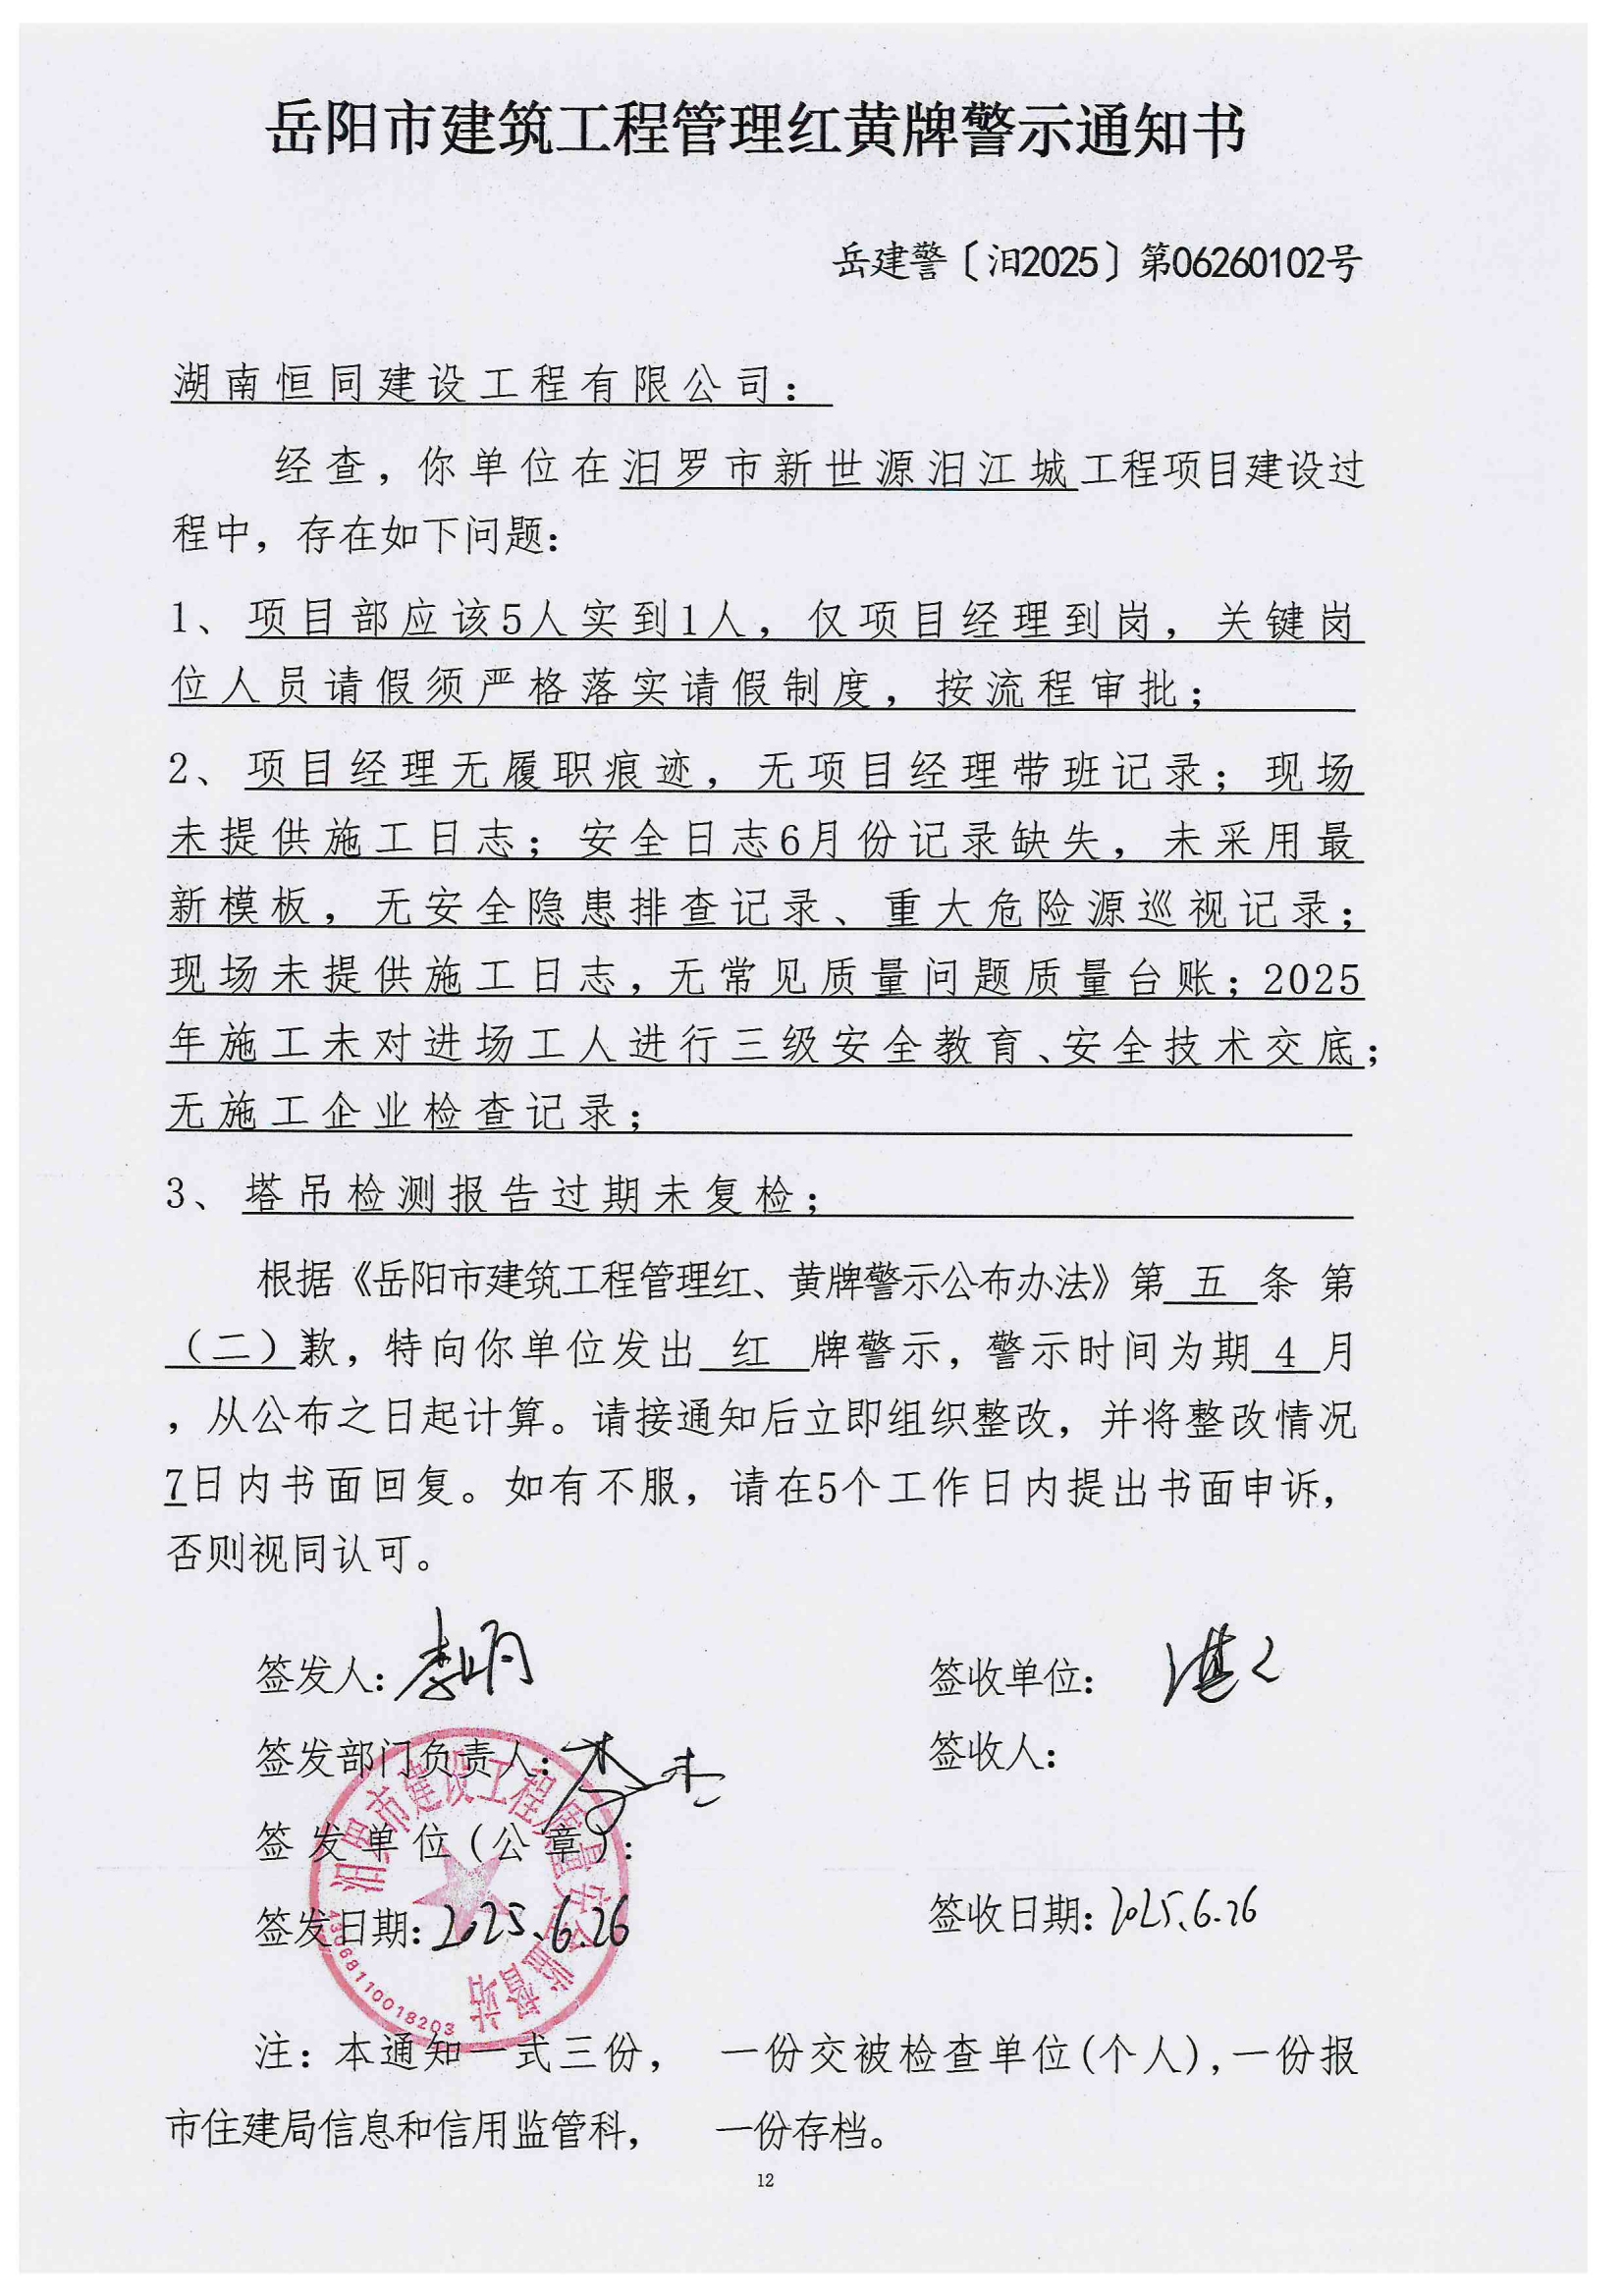 岳阳市建筑工程管理红黄牌警示通知书
岳建警〔汨2025〕第06260102号
湖南恒同建设工程有限公司：
经查，你单位在汨罗市新世源汨江城工程项目建设过
程中，存在如下问题：
1、项目部应该5人实到1人，仅项目经理到岗，关键岗
位人员请假须严格落实请假制度，按流程审批；
2、项目经理无履职痕迹，无项目经理带班记录；现场
未提供施工日志；安全日志6月份记录缺失，未采用最
新模板，无安全隐患排查记录、重大危险源巡视记录；
现场未提供施工日志，无常见质量问题质量台账；2025
年施工未对进场工人进行三级安全教育、安全技术交底；
无施工企业检查记录；
3、塔吊检测报告过期未复检；
根据《岳阳市建筑工程管理红、黄牌警示公布办法》第 五 条 第
（二）款，特向你单位发出 红 牌警示，警示时间为期 4 月
，从公布之日起计算。请接通知后立即组织整改，并将整改情况
7日内书面回复。如有不服，请在5个工作日内提出书面申诉，
否则视同认可。
签发人： 签收单位：
签发部门负责人： 签收人：
签发单位（公章）：
签发日期：2025.6.26 签收日期：2025.6.26
汨罗市建设工程质量安全监督站
43068110018203
注：本通知一式三份， 一份交被检查单位(个人),一份报
市住建局信息和信用监管科， 一份存档。
12